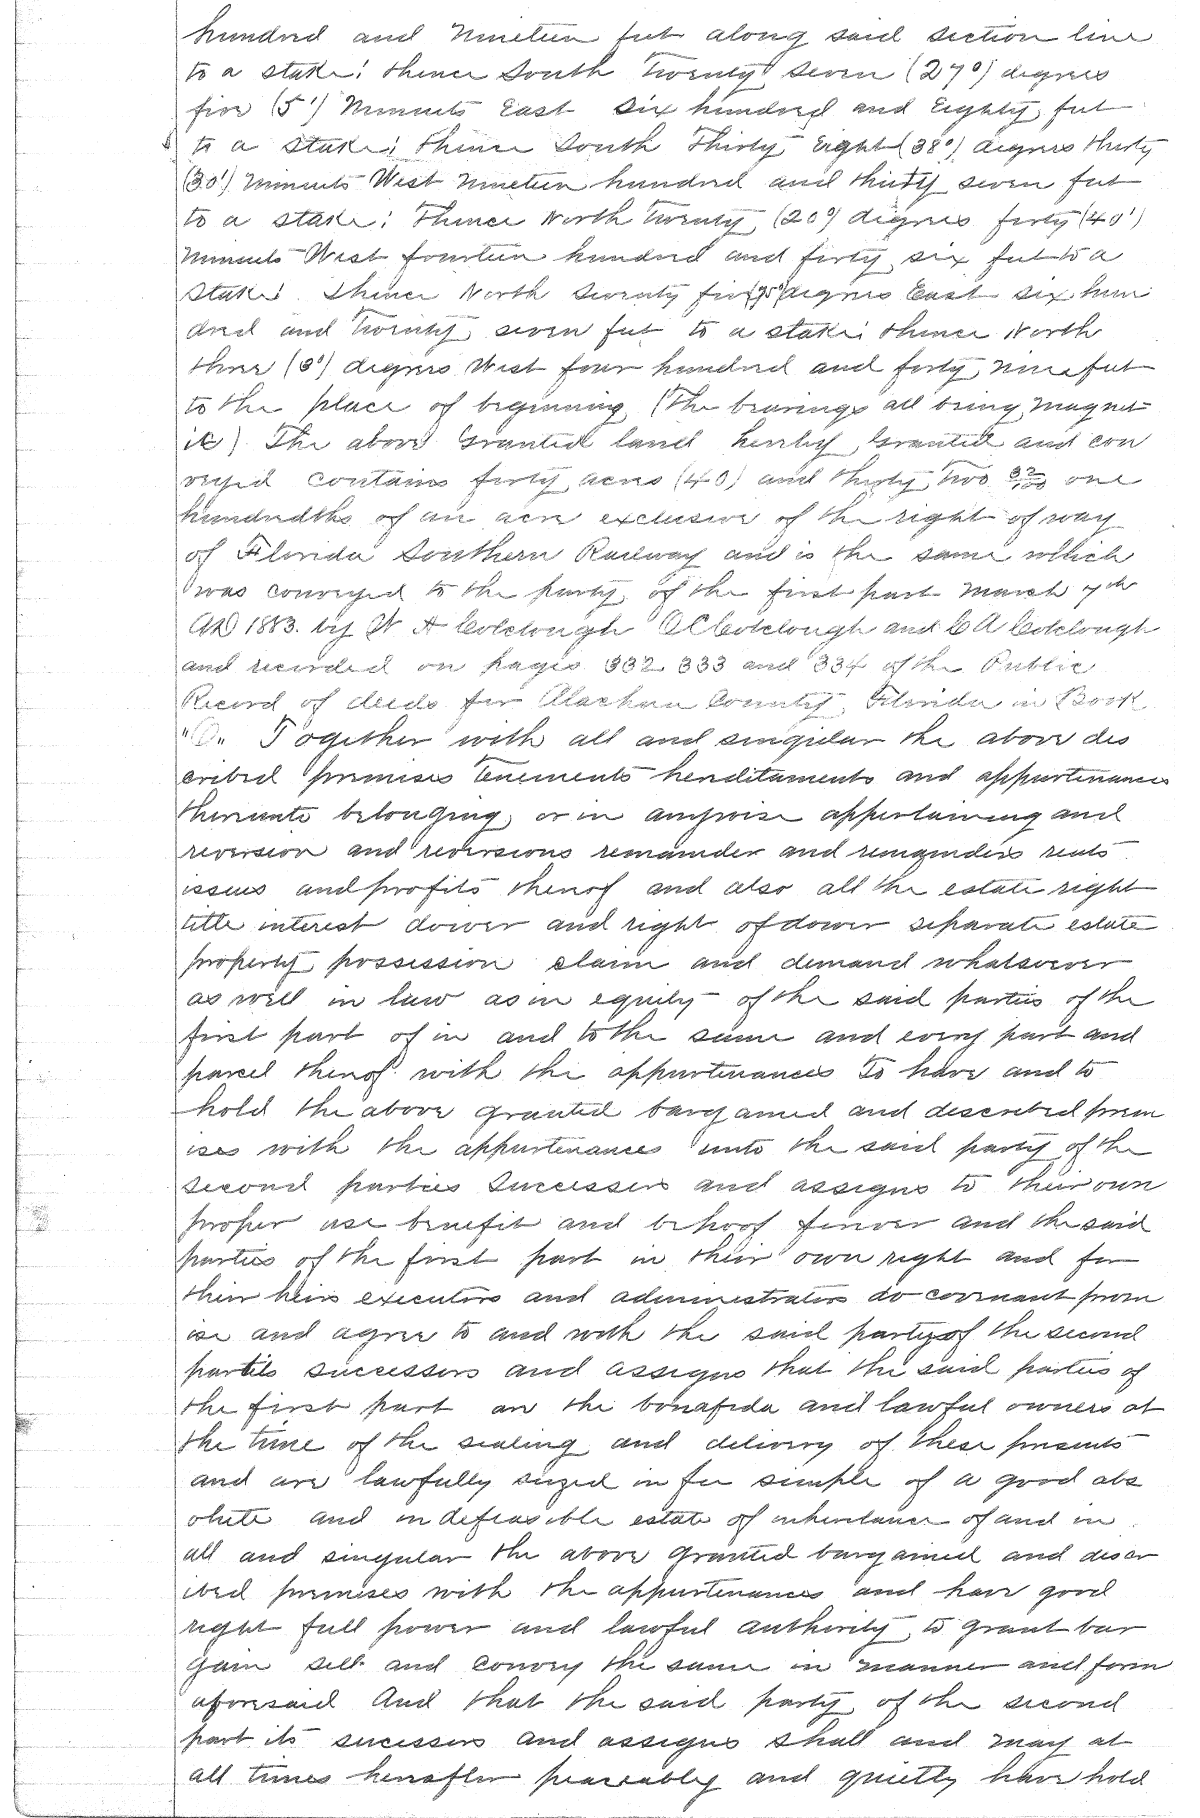 hundred and Nineteen feet along said section line
to a stake; thence South Twenty seven (27°) degrees
five (5') Minnuts East six hundred and Eighty feet
to a stake; thence South Thirty Eight (38°) degrees thirty
(30') Minnuts West Nineteen hundred and thirty seven feet
to a stake; Thence North Twenty (20°) degrees forty (40')
Minnuts West fourteen hundred and forty six feet to a
stake; Thence North Seventy five (75°) degrees East six hun
dred and twenty seven feet to a stake; thence North
three (3°) degrees West four hundred and forty nine feet
to the place of beginning (the bearings all being magnet
ic) The above Granted land hereby Granted and con
veyed contains forty acres (40) and thirty Two 32/100 one
hundredths of an acre exclusive of the right of way
of Florida Southern Railway and is the same which
was conveyed to the party of the first part March 7th
AD 1883. by W A Colclough O C Colclough and C A Colclough
and recorded on pages 332 333 and 334 of the Public
Record of deeds for Alachua County, Florida in Book
Together with all and singular the above des
cribed premises tenements herditaments and appurtenances
thereunto belonging, or in anywise appertaining and
reversion and reversions remainder and remainders rents
issues and profits thereof and also all the estate right
title interest dower and right of dower separate estate
property, possession claim and demand whatsoever
as well in law as in equity of the said parties of the
first part of in and to the same and every part and
parcel thereof with the appurtenances To have and to
hold the above granted bargained and described prem
ises with the appurtenances unto the said party of the
second parties successors and assigns to their own
proper use benefit and behoof forever and the said
parties of the first part in their own right and for
their heirs executors and administrators do covenant prom
ise and agree to and with the said party of the second
parties successors and assigns that the said parties of
the first part are the bonafida and lawful owners at
the time of the sealing and delivery of these presents
and are lawfully seized in fee simple of a good abs
olute and indefeasible estate of inheritance of and in
all and singular the above granted bargained and descr
ibed premises with the appurtenances and have good
right full power and lawful authority to grant bar
gain sell and convey the same in manner and form
aforesaid And that the said party of the second
part its sucessors and assigns shall and may at
all times hereafter peaceably and quietly have hold